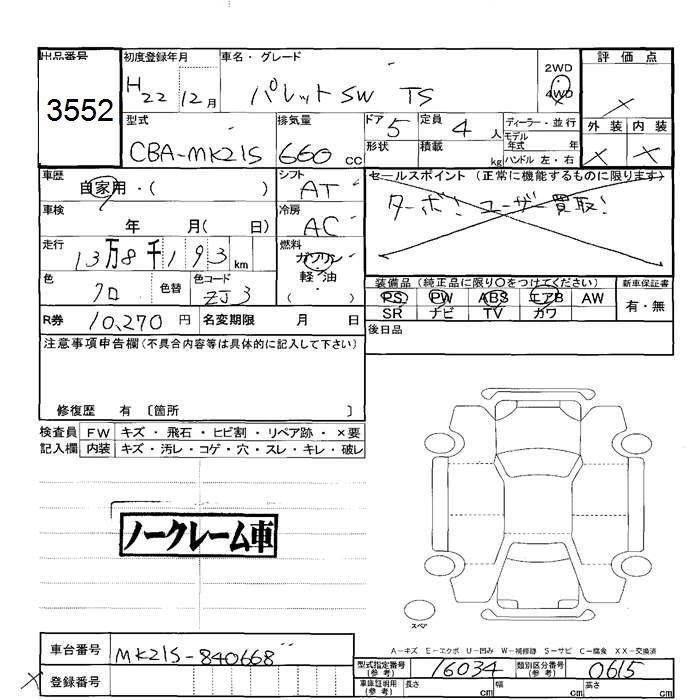 出品番号 初度登録年月 車名・グレード 2WD 評価点
3552 H22 12月 パレットSW TS 4WD ×
型式 排気量 ドア 5 定員 4人 ディーラー・並行 外装 内装
CBA-MK21S 660cc 形状 積載 kg モデル年式 年 × ×
ハンドル 左・右
車歴 自家用・( ) シフト AT セールスポイント (正常に機能するものに限ります)
ターボ! ユーザー買取!
車検 年 月( 日) 冷房 AC
走行 13万8千193km 燃料 ガソリン
軽・油
( )
色 クロ 色替 色コード ZJ3 装備品 (純正品に限り〇をつけてください) 新車保証書
PS PW ABS エアB AW 有・無
SR ナビ TV カワ
R券 10,270円 名変期限 月 日 後日品
注意事項申告欄(不具合内容等は具体的に記入して下さい)
修復歴 有 〔箇所 〕
検査員 FW キズ・飛石・ヒビ割・リペア跡・×要
記入欄 内装 キズ・汚レ・コゲ・穴・スレ・キレ・破レ
ノークレーム車
スペア
A-キズ E-エクボ U-凹み W-補修跡 S-サビ C-腐食 XX-交換済
車台番号 MK21S-840668 型式指定番号(参考) 16034 類別区分番号(参考) 0615
× 登録番号 車庫証明用(参考) 長さ cm 幅 cm 高さ cm